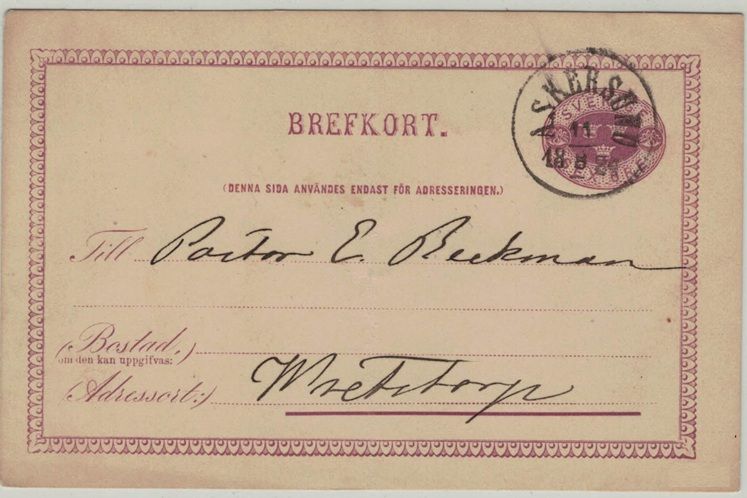 BREFKORT.
ASKERSUND
11
SVERIGE
(DENNA SIDA ANVÄNDES ENDAST FÖR ADRESSERINGEN.)
Till Pastor E. Beckman
(Bostad,)
om den kan uppgifvas:
(Adressort:) Wretstorp